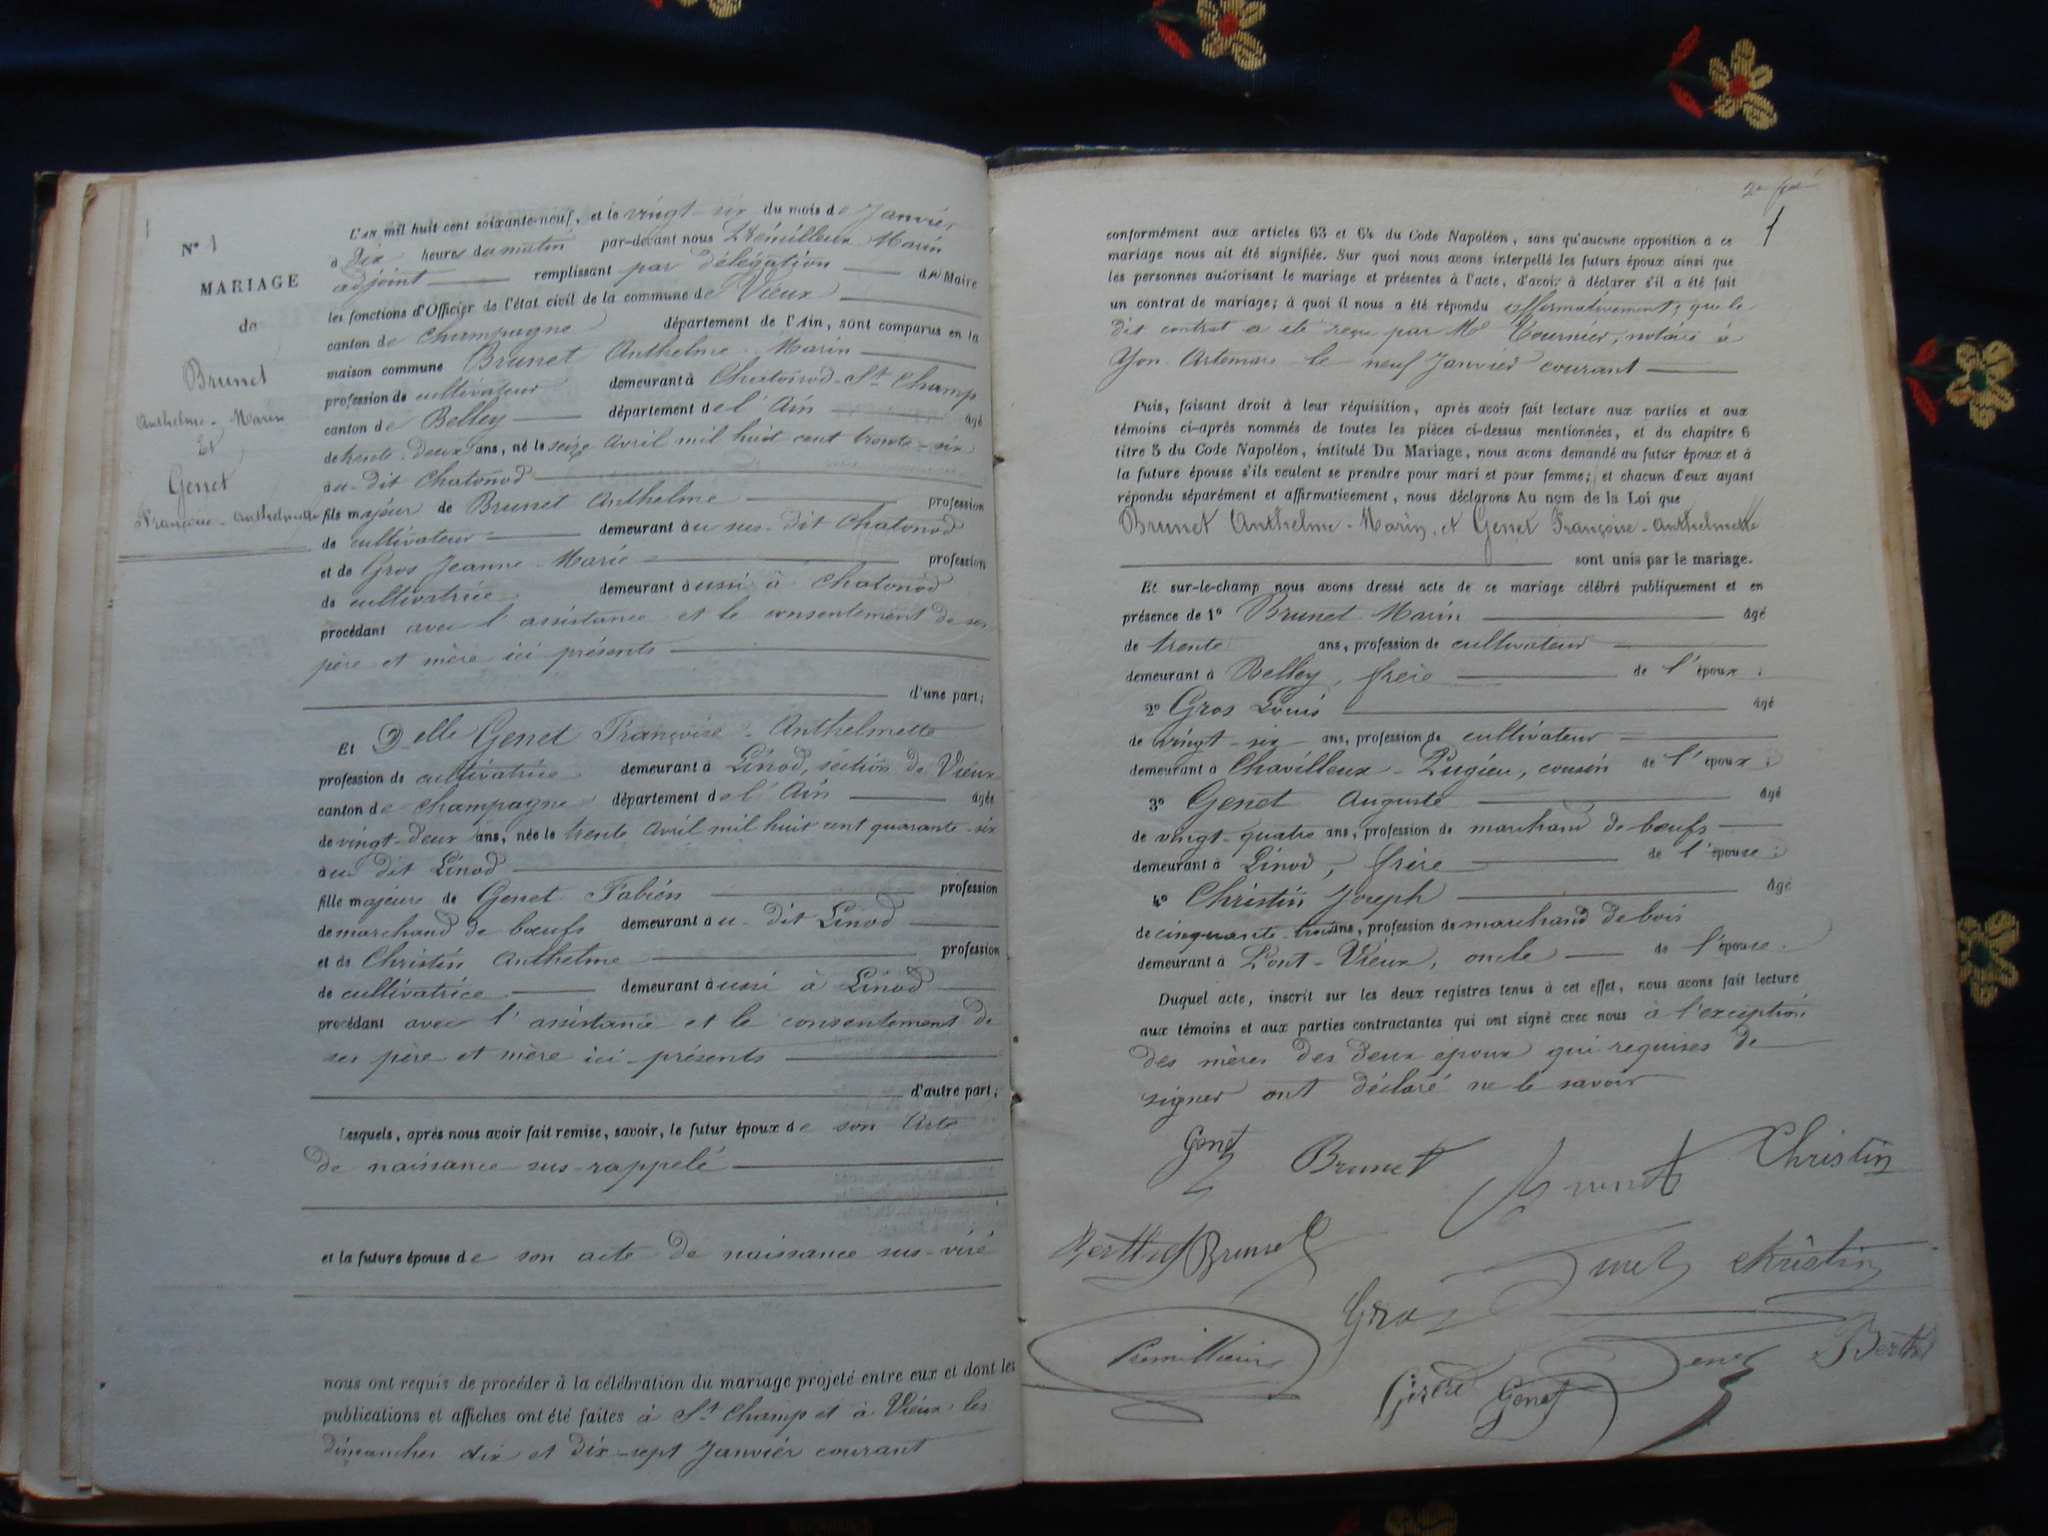 N° 1
MARIAGE
de
Brunet
Anthelme-Marin
Et
Genet
Françoise-Anthelmette
L'AN mil huit cent soixante-neuf, et le vingt-six du mois de Janvier
à dix heures du matin par-devant nous Prémilleux Marin
adjoint remplissant par délégation du Maire
les fonctions d'Officier de l'état civil de la commune de Vieux
canton de Champagne département de l'Ain, sont comparus en la
maison commune Brunet Anthelme-Marin
profession de cultivateur demeurant à Chatonod-St Champ
canton de Belley département de l'Ain âgé
de trente-deux ans, né le seize Avril mil huit cent trente-six
au-dit Chatonod
fils majeur de Brunet Anthelme profession
de cultivateur demeurant au sus-dit Chatonod
et de Gros Jeanne-Marie profession
de cultivatrice demeurant aussi à Chatonod
procédant avec l'assistance et le consentement de ses
père et mère ici présents
d'une part;
Et Delle Genet Françoise-Anthelmette
profession de cultivatrice demeurant à Linod, section de Vieux
canton de Champagne département de l'Ain âgée
de vingt-deux ans, née le trente Avril mil huit cent quarante-six
au dit Linod
fille majeure de Genet Fabien profession
de marchand de bœufs demeurant au-dit Linod
et de Christin Anthelme profession
de cultivatrice demeurant aussi à Linod
procédant avec l'assistance et le consentement de
ses père et mère ici-présents
d'autre part;
Lesquels, après nous avoir fait remise, savoir, le futur époux de son Acte
de naissance sus-rappelé
et la future épouse de son acte de naissance sus-visé
nous ont requis de procéder à la célébration du mariage projeté entre eux et dont les
publications et affiches ont été faites à St Champ et à Vieux les
dimanches dix et dix-sept Janvier courant
1
conformément aux articles 63 et 64 du Code Napoléon, sans qu'aucune opposition à ce
mariage nous ait été signifiée. Sur quoi nous avons interpellé les futurs époux ainsi que
les personnes autorisant le mariage et présentes à l'acte, d'avoir à déclarer s'il a été fait
un contrat de mariage; à quoi il nous a été répondu affirmativement, que le
dit contrat a été reçu par Me Tournier, notaire à
Yon-Artemare le neuf Janvier courant
Puis, faisant droit à leur réquisition, après avoir fait lecture aux parties et aux
témoins ci-après nommés de toutes les pièces ci-dessus mentionnées, et du chapitre 6
titre 5 du Code Napoléon, intitulé Du Mariage, nous avons demandé au futur époux et à
la future épouse s'ils veulent se prendre pour mari et pour femme; et chacun d'eux ayant
répondu séparément et affirmativement, nous déclarons Au nom de la Loi que
Brunet Anthelme-Marin, et Genet Françoise-Anthelmette
sont unis par le mariage.
Et sur-le-champ nous avons dressé acte de ce mariage célébré publiquement et en
présence de 1° Brunet Marin âgé
de trente ans, profession de cultivateur
demeurant à Belley, frère de l'époux;
2° Gros Louis âgé
de vingt-six ans, profession de cultivateur
demeurant à Chavilleux-Pugieu, cousin de l'époux;
3° Genet Auguste âgé
de vingt-quatre ans, profession de marchand de bœufs
demeurant à Linod, frère de l'épouse;
4° Christin Joseph âgé
de cinquante-trois ans, profession de marchand de bois
demeurant à Pont-Vieux, oncle de l'épouse.
Duquel acte, inscrit sur les deux registres tenus à cet effet, nous avons fait lecture
aux témoins et aux parties contractantes qui ont signé avec nous à l'exception
des mères des deux époux qui requises de
signer ont déclaré ne le savoir
Genet Brunet Brunet Christin
Berthet Brunet Genet christin
Gros
Premilleux Genet Berthet
Genet